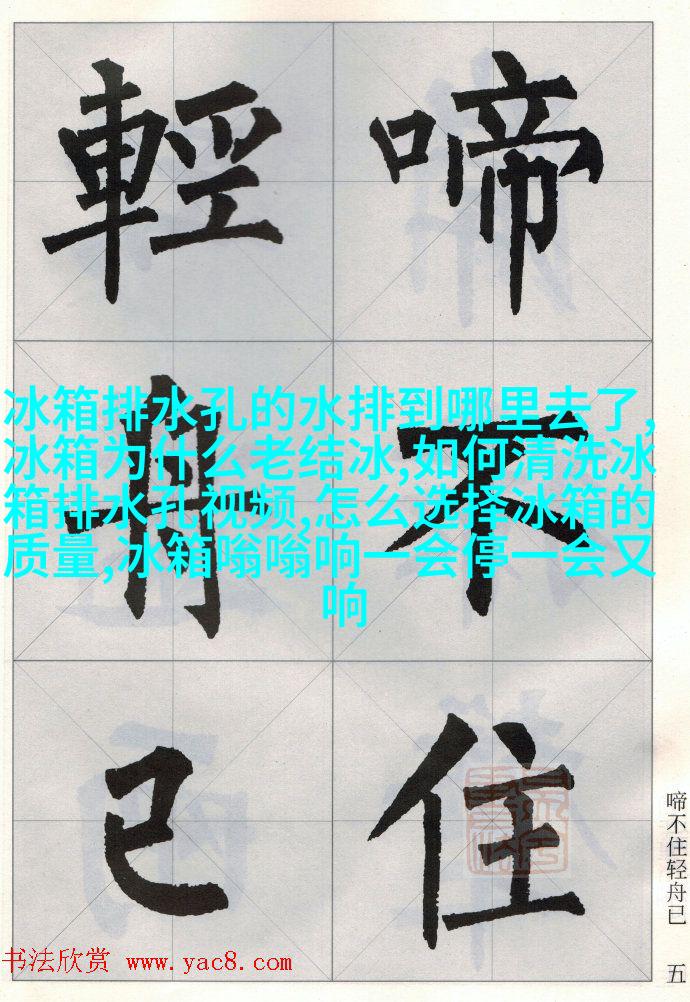 啼不住
輕舟已
冰箱排水孔的水排到哪里去了,
冰箱为什么老结冰,如何清洗冰
箱排水孔视频,怎么选择冰箱的
质量,冰箱嗡嗡响一会停一会又
响
啼不住轻舟已 五
书法欣赏 www.yac8.com